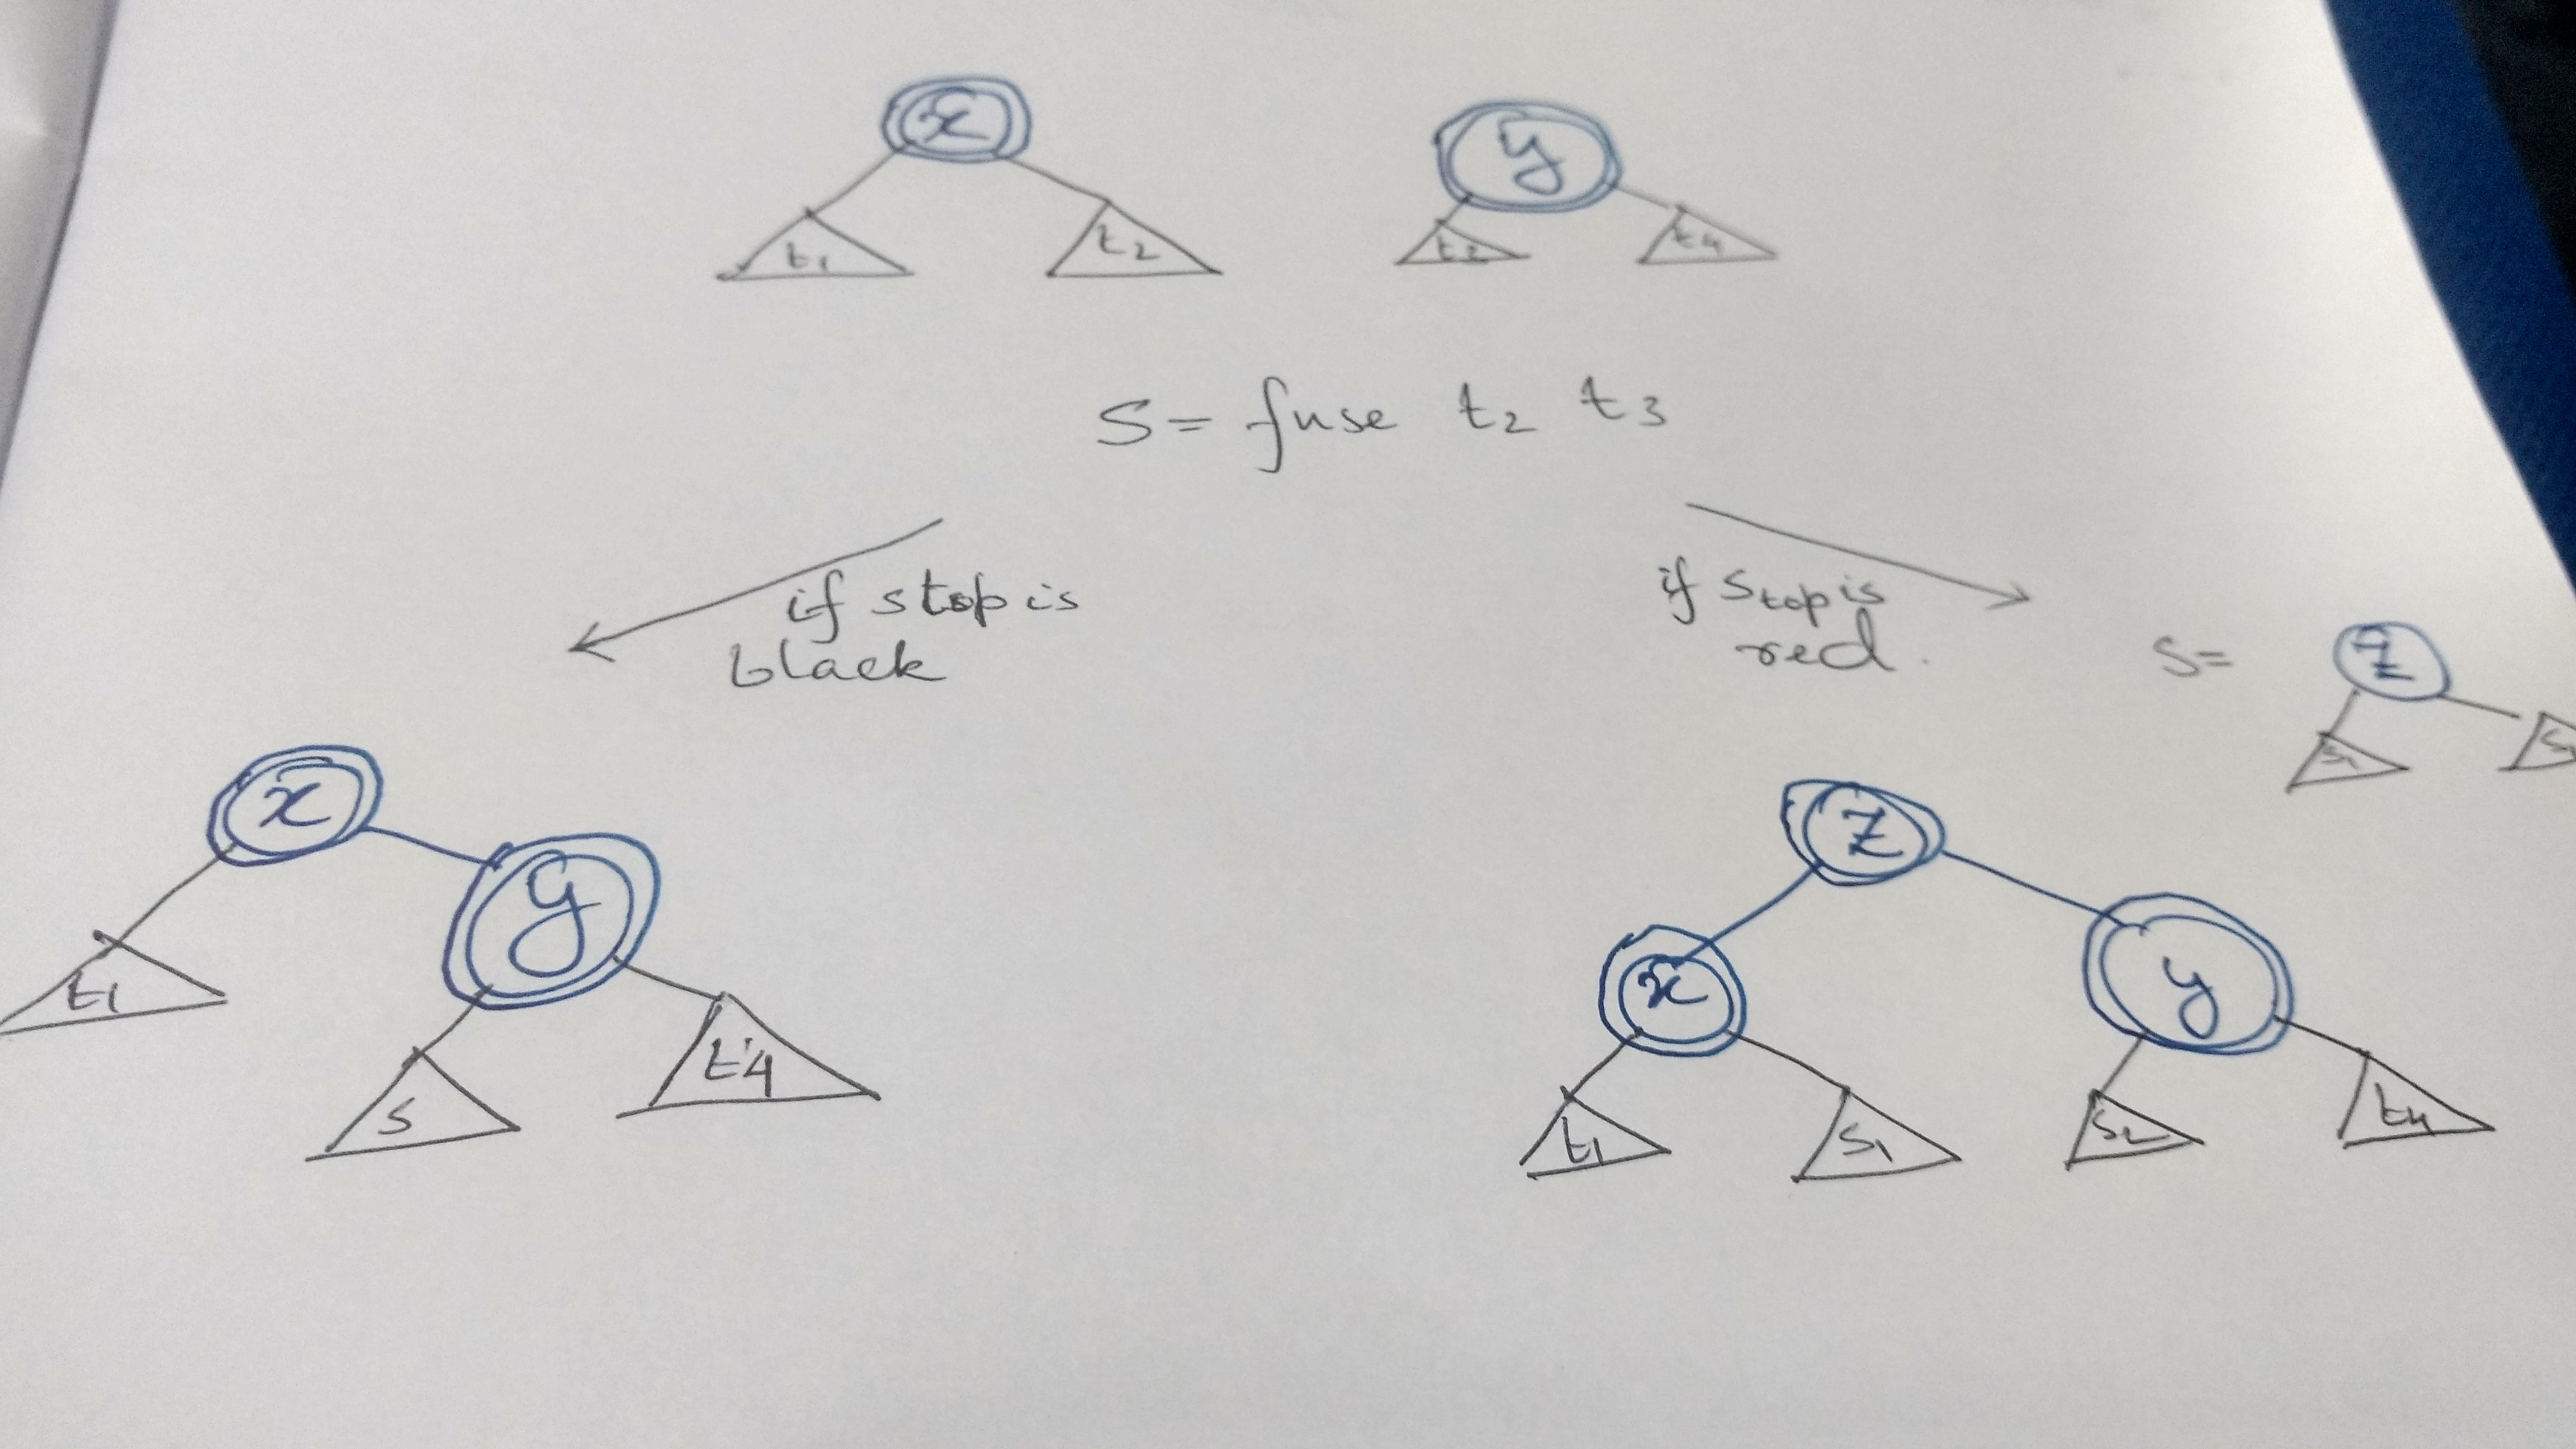 x y
t1 t2 t3 t4
S = fuse t2 t3
if stop is
black
if stop is
red.
S= z
s1
x
y
t1
s t4
z
x y
t1 s1 s2 t4